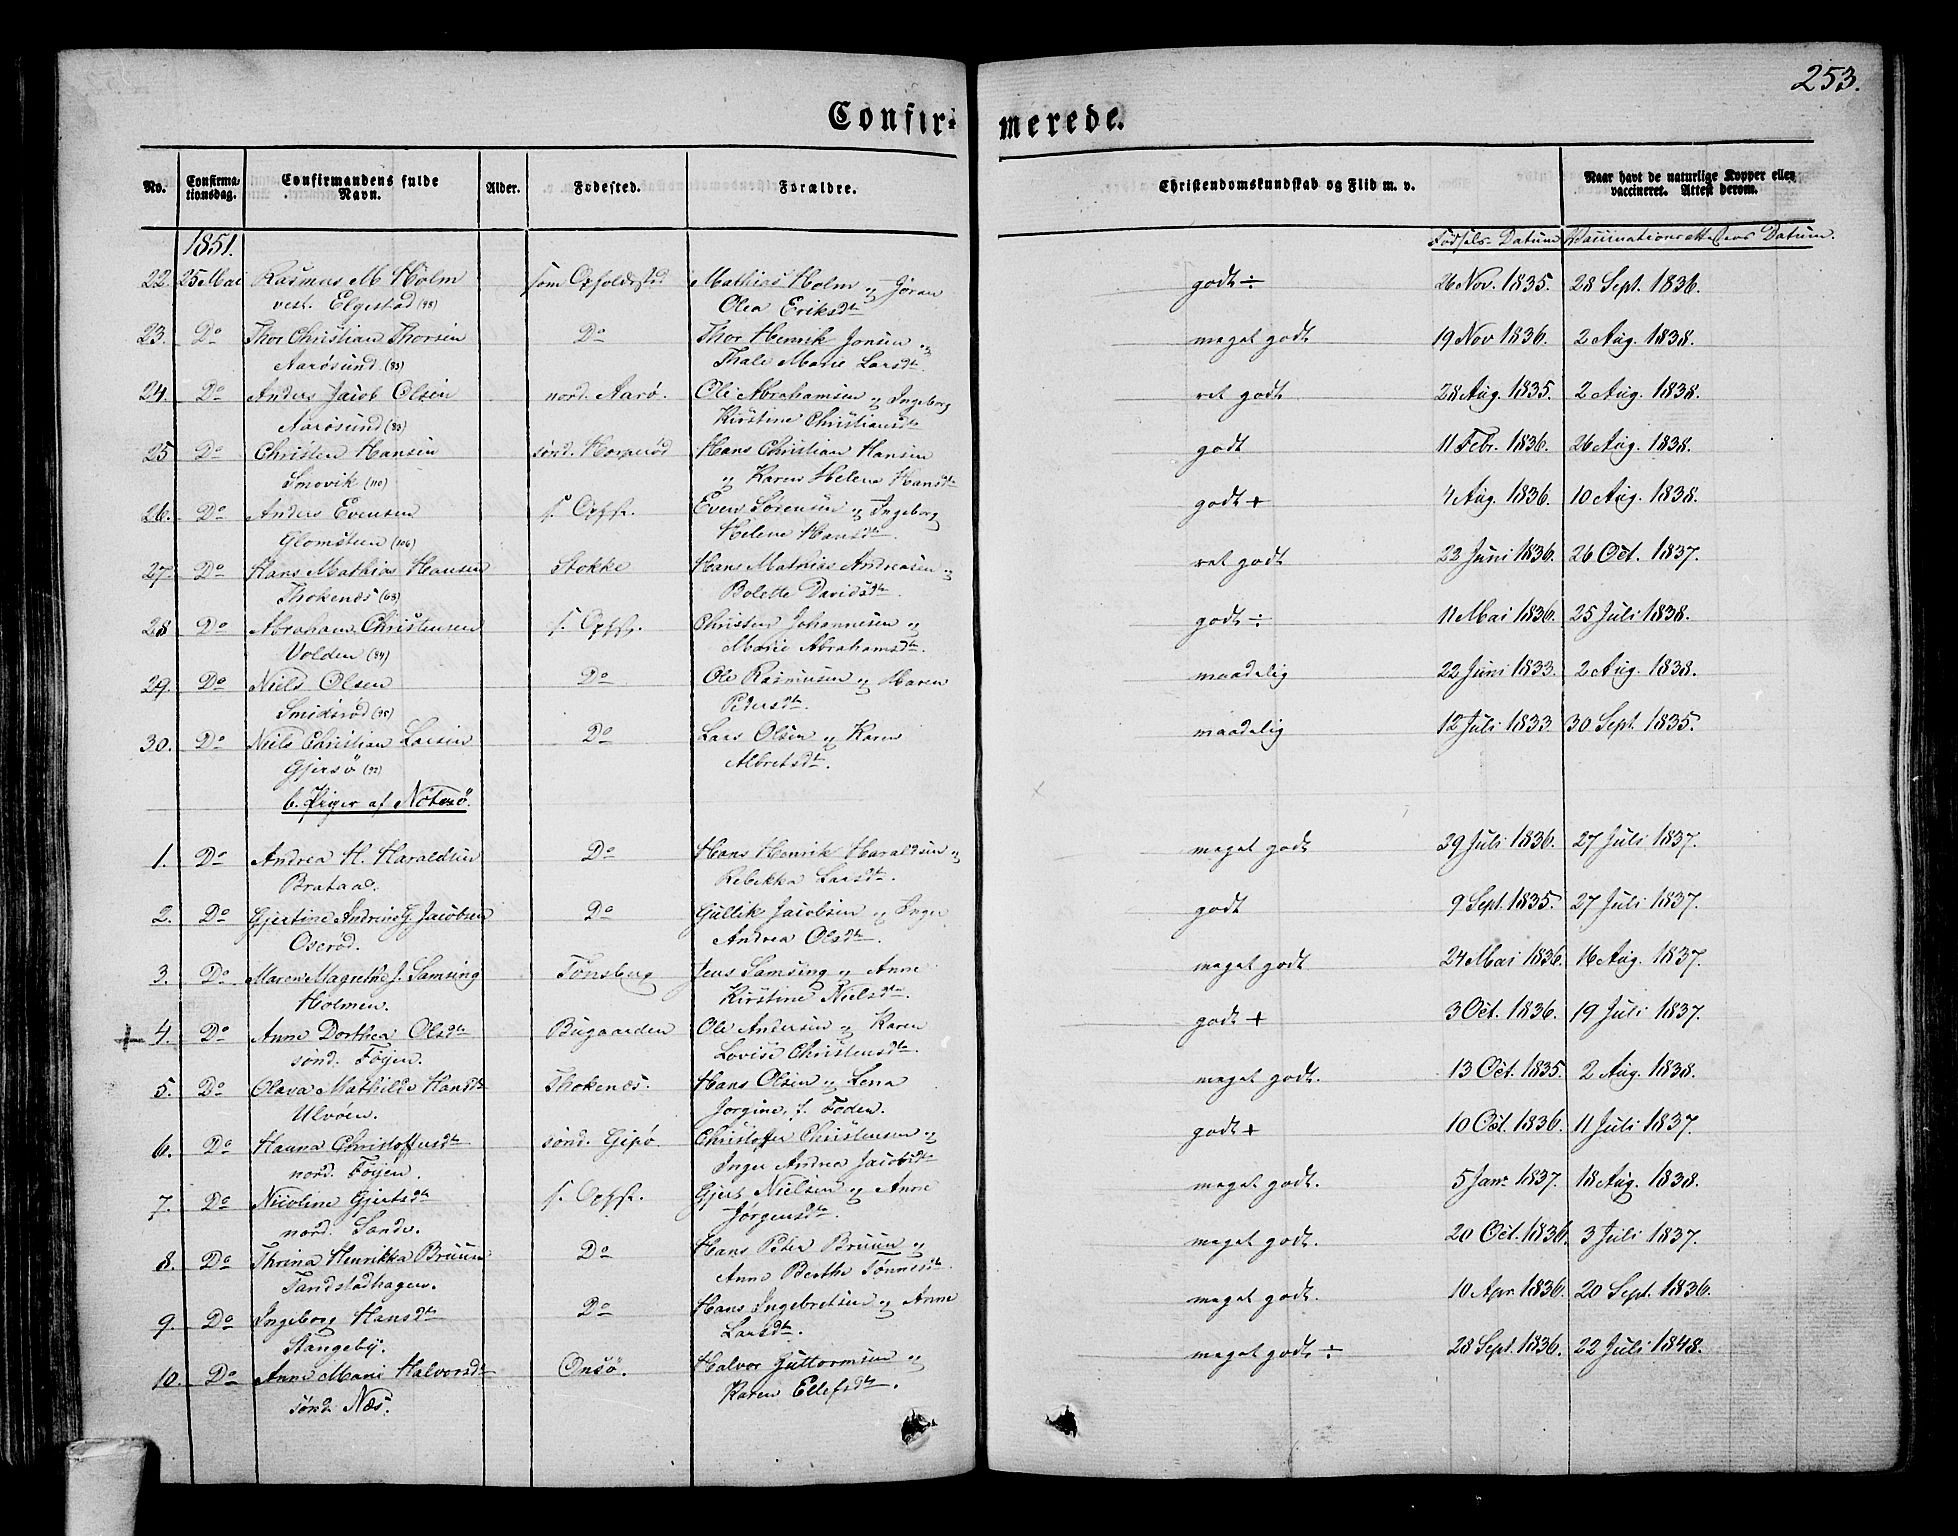 253.
Confir-
merede.
No.
Confirma-
tionsdag.
Confirmandens fulde
Navn.
Alder.
Fødested.
Forældre.
Christendomskundskab og Flid m. v.
Naar havt de naturlige Kopper eller
vaccineret. Attest derom.
1851.
Fødsels-Datum Vaccinationsattestens Datum.
22. 25 Mai Rasmus M Holm som Opholdssted Mathias Holm og Jøran godt ÷ 26 Nov. 1835. 28 Sept. 1836.
vest. Elgestad (98) Olea Eriksdtr
23. Do Thor Christian Thorsen Do Thor Henrik Jonsen og meget godt 19 Nov 1836. 2 Aug. 1838.
Aarøsund (93) Thale Marie Larsdtr.
24. Do Anders Jacob Olsen nord. Aarø. Ole Abrahamsen og Ingeborg ret godt 28 Aug. 1835. 2 Aug. 1838.
Aarøsund (93) Kirstine Christiansdtr
25 Do Christen Hansen sønd. Horperød Hans Christian Hansen godt 11 Febr. 1836. 26 Aug. 1838.
Smovik (110) og Karen Helene Hansdtr
26. Do Anders Evensen s. Opst. Even Sørensen og Ingeborg godt + 4 Aug. 1836. 10 Aug. 1838.
Glomsteen (106) Helene Hansdtr.
27. Do Hans Mathias Hansen Stokke Hans Mathias Andreasen og ret godt 23 Juni 1836. 26 Oct. 1837.
Thokenæs (63) Bolette Davidsdtr.
28 Do Abraham Christensen s. Opst. Christen Johannesen og godt ÷ 11 Mai 1836. 25 Juli 1838.
Volden (84) Marie Abrahamsdtr.
29. Do Niels Olsen Do Ole Rasmusen og Maren maadelig 22 Juni 1833. 2 Aug. 1838.
Smidsrød (95) Pedersdtr.
30. Do Niels Christian Larsen Do Lars Olsen og Karen maadelig 12 Juli 1833. 30 Sept. 1835.
Gjersø (92) Albretsdtr.
b. Piger af Nøterø.
1. Do Andrea H. Haraldsen Do Hans Henrik Haraldsen og meget godt 29 Juli 1836. 27 Juli 1837.
Brataas. Rebekka Larsdtr.
2. Do Gjertine Andrine G. Jacobsen Do Gullik Jacobsen og Inger godt 9 Sept. 1835. 27 Juli 1837.
Oserød. Andrea Olsdtr.
3. Do Maren Magrethe J. Samsing Tønsberg Jens Samsing og Anne meget godt 24 Mai 1836. 16 Aug. 1837.
Holmen. Kirstine Nielsdtr.
+ 4. Do Anne Dorthea Olsdtr Bugaarden Ole Andersen og Karen godt + 3 Oct. 1836. 19 Juli 1837.
sønd. Føyen. Lovise Christensdtr.
5. Do Olava Mathilde Hansdtr Thokenæs. Hans Olsen og Lena meget godt. 13 Oct. 1835. 2 Aug. 1838.
Ulvøen. Jorgine, f. Foden.
6. Do Hanna Christoffersdtr sønd. Gipø. Christoffer Christensen og godt + 10 Oct. 1836. 11 Juli 1837.
nord. Føyen. Inger Andrea Jacobsdtr
7. Do Nicoline Gjertsdtr s. Opst. Gjert Nielsen og Anne meget godt. 5 Janr 1837. 18 Aug. 1838.
nord. Sande. Jørgensdtr.
8. Do Thrina Henrikka Bruun Do Hans Peter Bruun og meget godt. 20 Oct. 1836. 3 Juli 1837.
Tandstadhagen. Anne Berthe Tønnesdtr.
9. Do Ingeborg Hansdtr Do Hans Ingebretsen og Anne meget godt. 10 Apr. 1836. 20 Sept. 1836.
Stangeby. Larsdtr.
10. Do Anne Marie Halvorsdtr Onsø. Halvor Guttormsen og meget godt ÷ 28 Sept. 1836. 22 Juli 1848.
sønd. Næs. Karen Ellefsdtr.